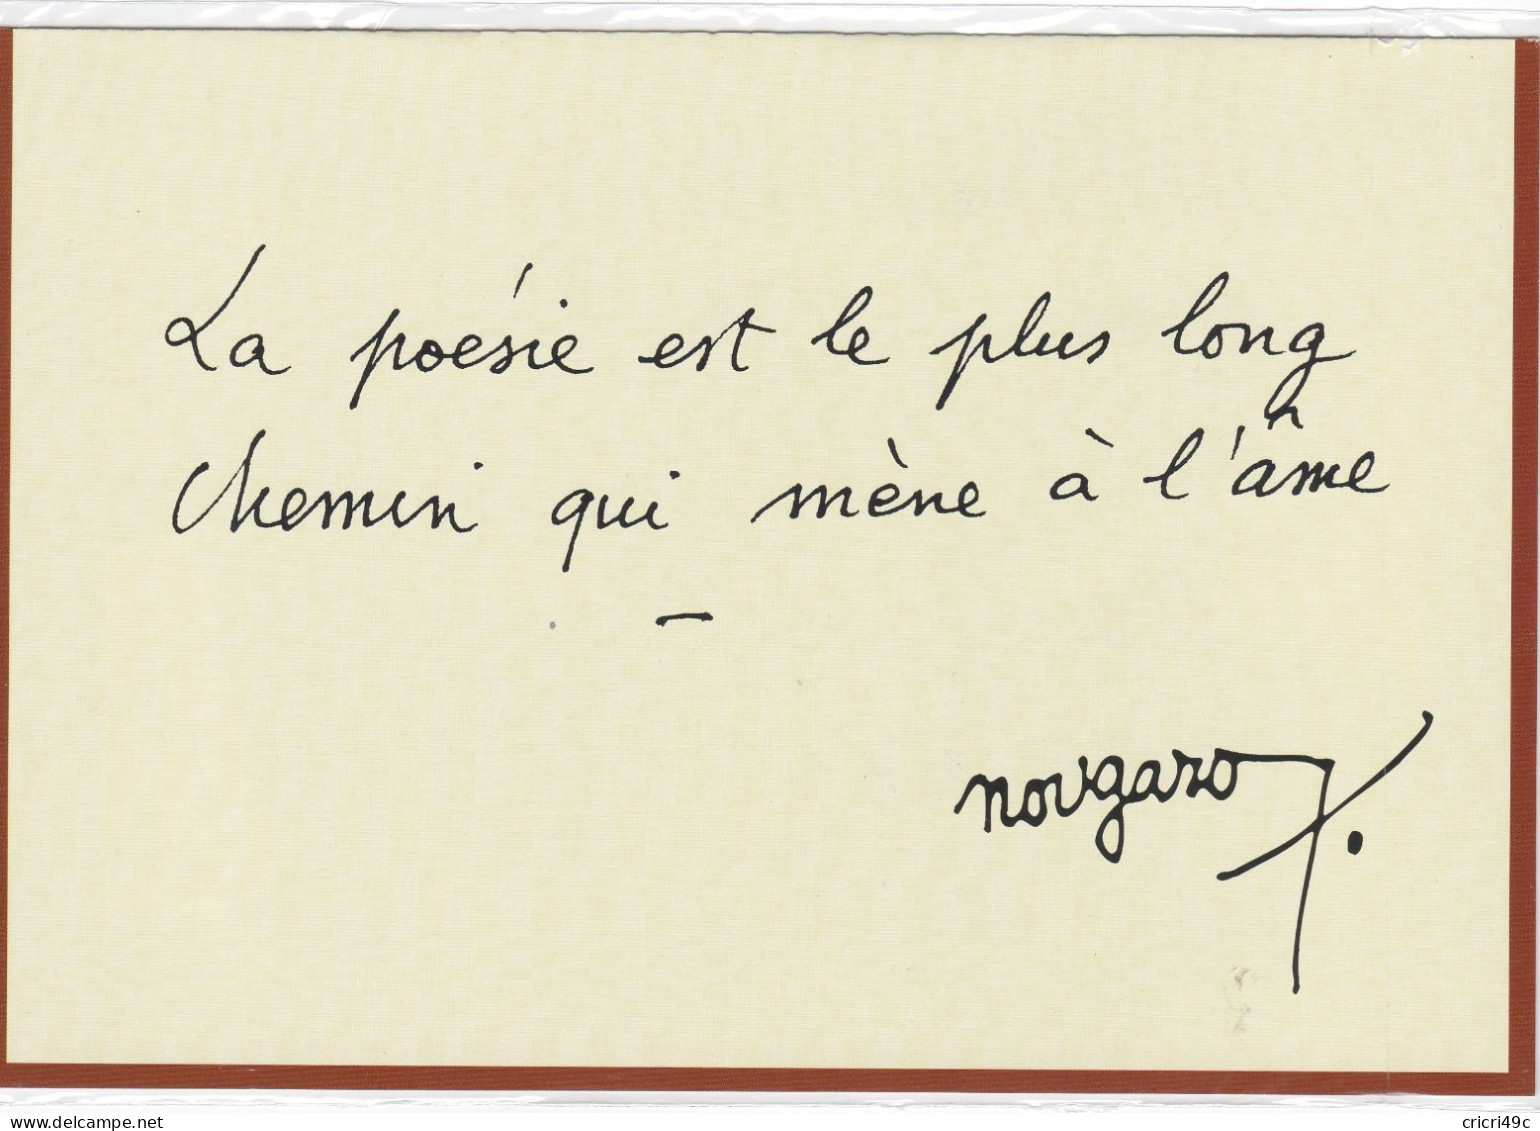 La poésie est le plus long
chemin qui mène à l'âme
—
nougaro.
www.delcampe.net
cricri49c